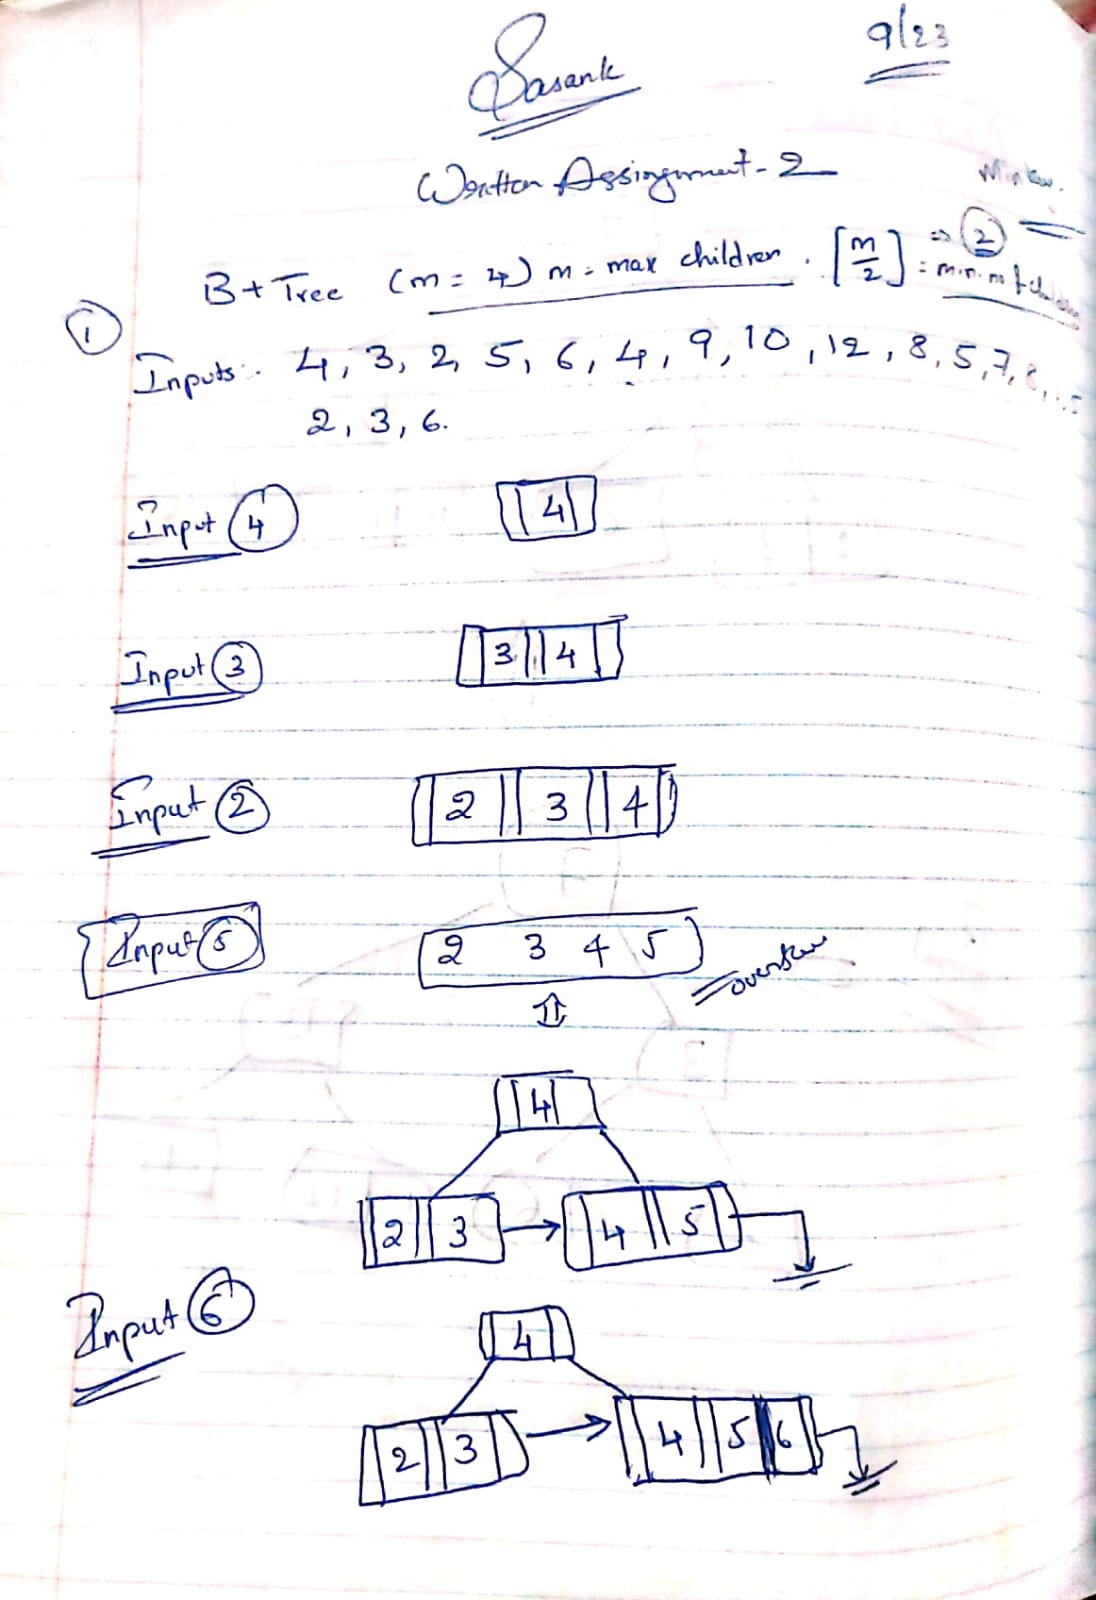 9/23
Sasank
Written Assingnment-2
B+ Tree (m = 4) m = max children . [m/2] => 2
= min. no of
1
Inputs:- 4, 3, 2, 5, 6, 4, 9, 10, 12, 8, 5, 7, 8,
2, 3, 6.
Input 4
4
Input 3
3 4
Input 2
2 3 4
Input 5
2 3 4 5
overflow
4
2 3 4 5
Input 6
4
2 3 4 5 6